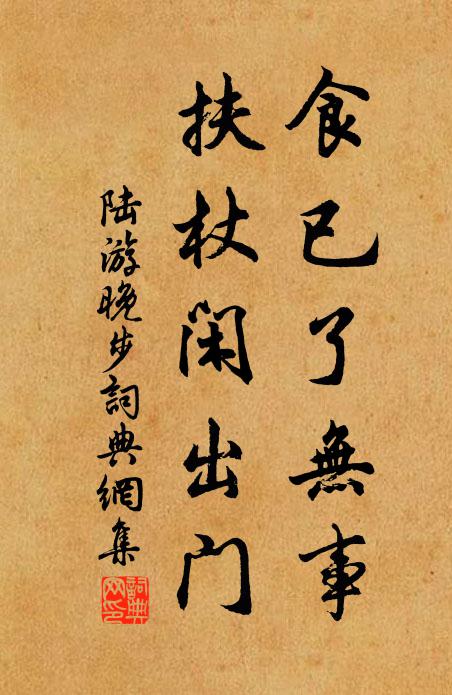 食已了無事
扶杖閑出門
陆游晚步詞典網集
詞典网印